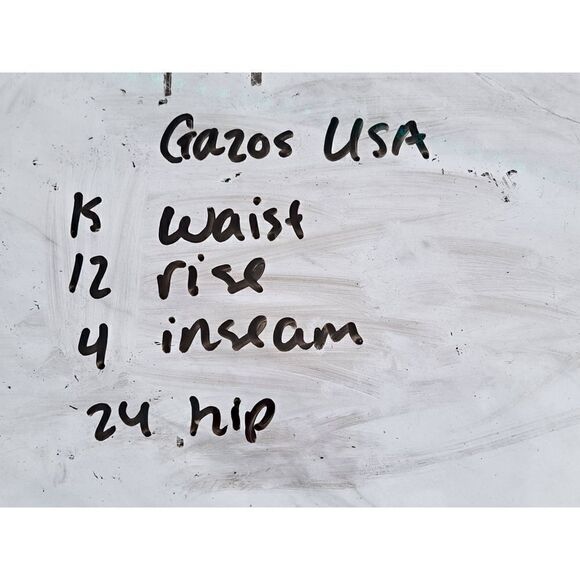 Gazos USA
15 waist
12 rise
4 inseam
24 hip